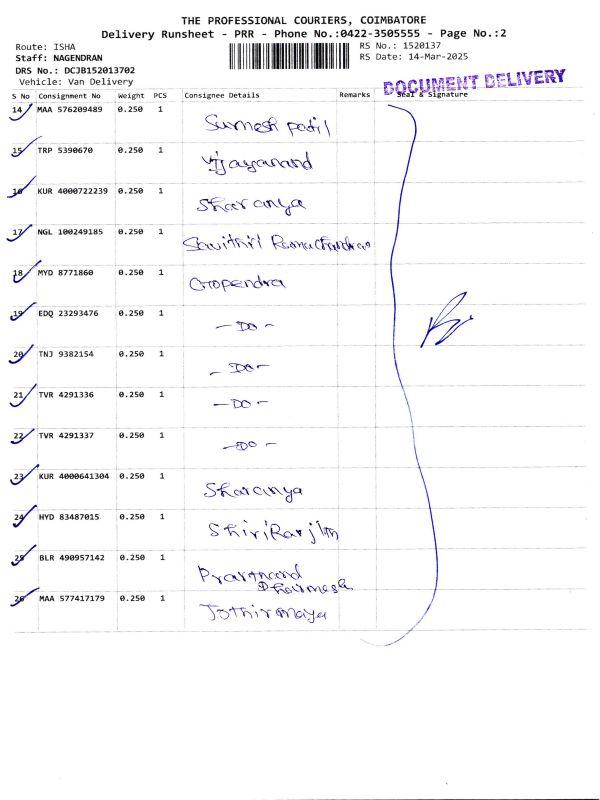 THE PROFESSIONAL COURIERS, COIMBATORE
Delivery Runsheet - PRR - Phone No.:0422-3505555 - Page No.:2
Route: ISHA RS No.: 1520137
Staff: NAGENDRAN RS Date: 14-Mar-2025
DRS No.: DCJB152013702
Vehicle: Van Delivery
DOCUMENT DELIVERY
S No Consignment No Weight PCS Consignee Details Remarks Seal & Signature
14 MAA 576209489 0.250 1
Sumesh patil
15 TRP 5390670 0.250 1
Vijayanand
16 KUR 4000722239 0.250 1
Sharanya
17 NGL 100249185 0.250 1
Savithri Ramachandran
18 MYD 8771860 0.250 1
Gopendra
19 EDQ 23293476 0.250 1
- DO -
20 TNJ 9382154 0.250 1
- DO -
21 TVR 4291336 0.250 1
- DO -
22 TVR 4291337 0.250 1
- DO -
23 KUR 4000641304 0.250 1
Sharanya
24 HYD 83487015 0.250 1
25 BLR 490957142 0.250 1
Dharmesh
26 MAA 577417179 0.250 1
Jothirmaya